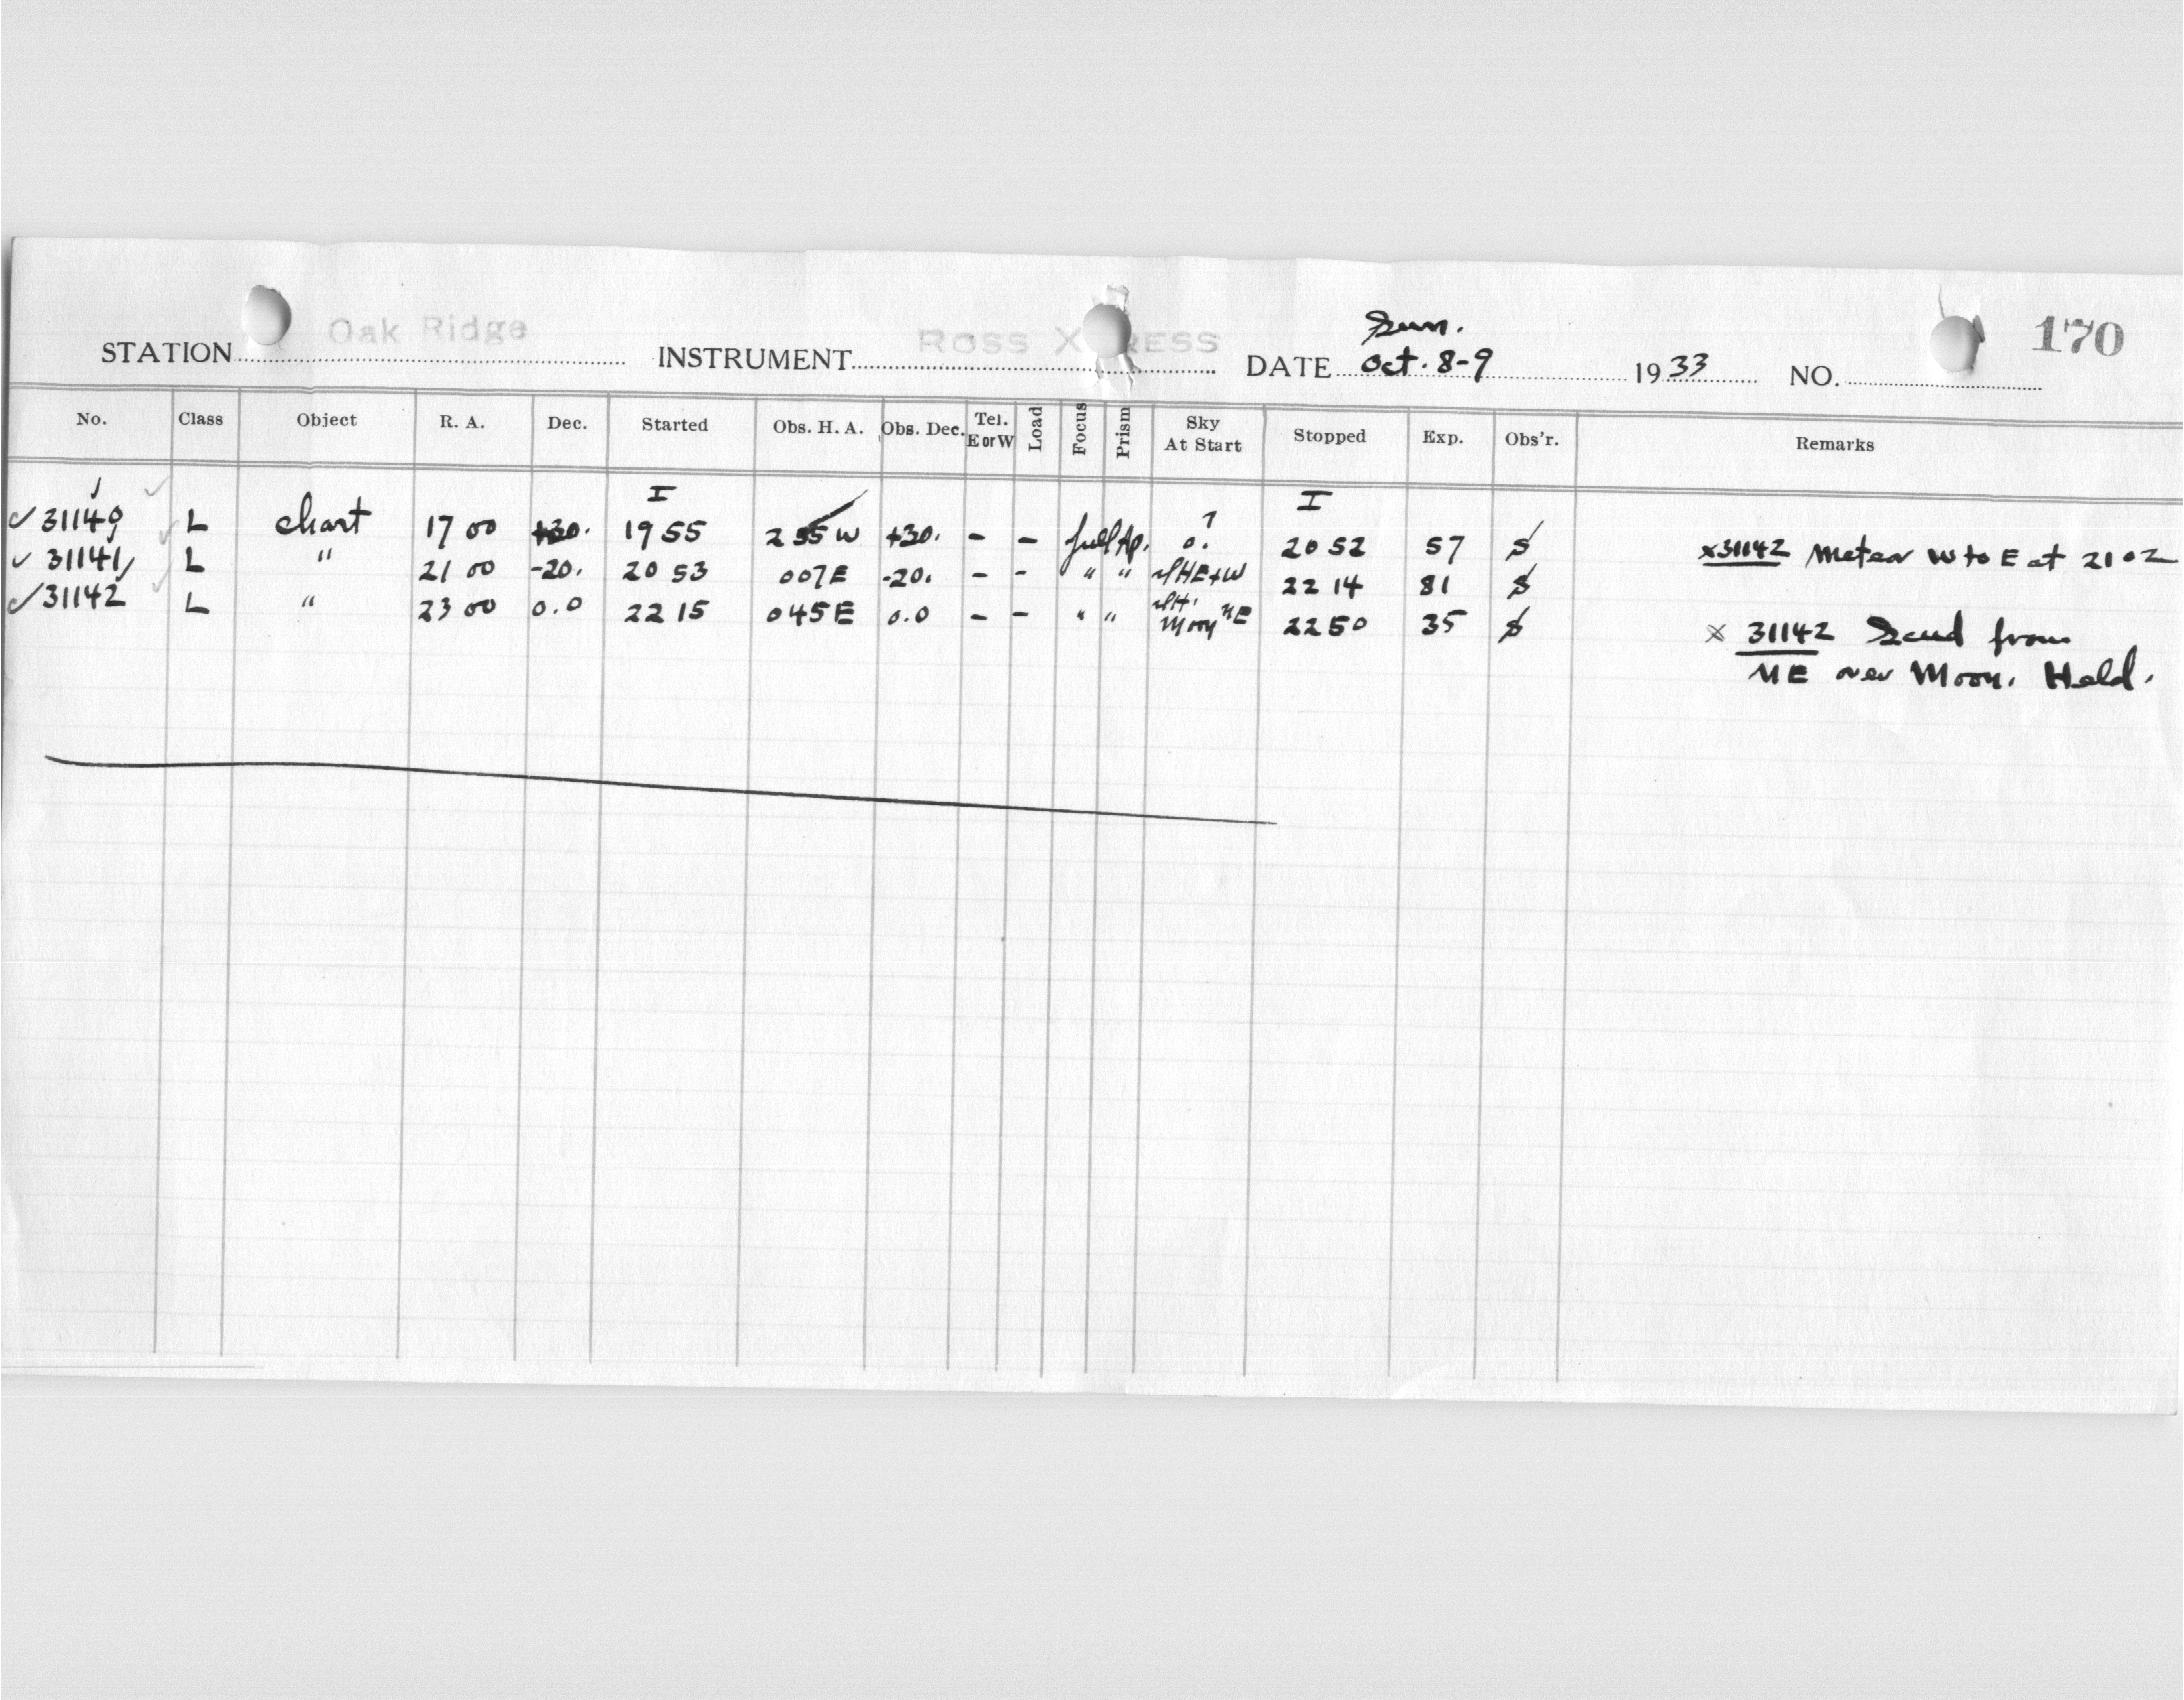 Sun.
STATION Oak Ridge INSTRUMENT ROSS X RESS DATE Oct. 8-9 1933 NO. 170
No. Class Object R. A. Dec. Started Obs. H. A. Obs. Dec. Tel. E or W Load Focus Prism Sky At Start Stopped Exp. Obs'r. Remarks
I I
31140 L chart 17 00 +30. 19 55 2 55 W +30. - - full Ap. 0? 20 52 57 S x31142 Meteor W to E at 21 02
31141 L " 21 00 -20. 20 53 007E -20. - - " " HE+W 22 14 81 S
31142 L " 23 00 0.0 22 15 045E 0.0 - - " " Moon NE 22 50 35 S x 31142 Scud from
NE over Moon. Held.